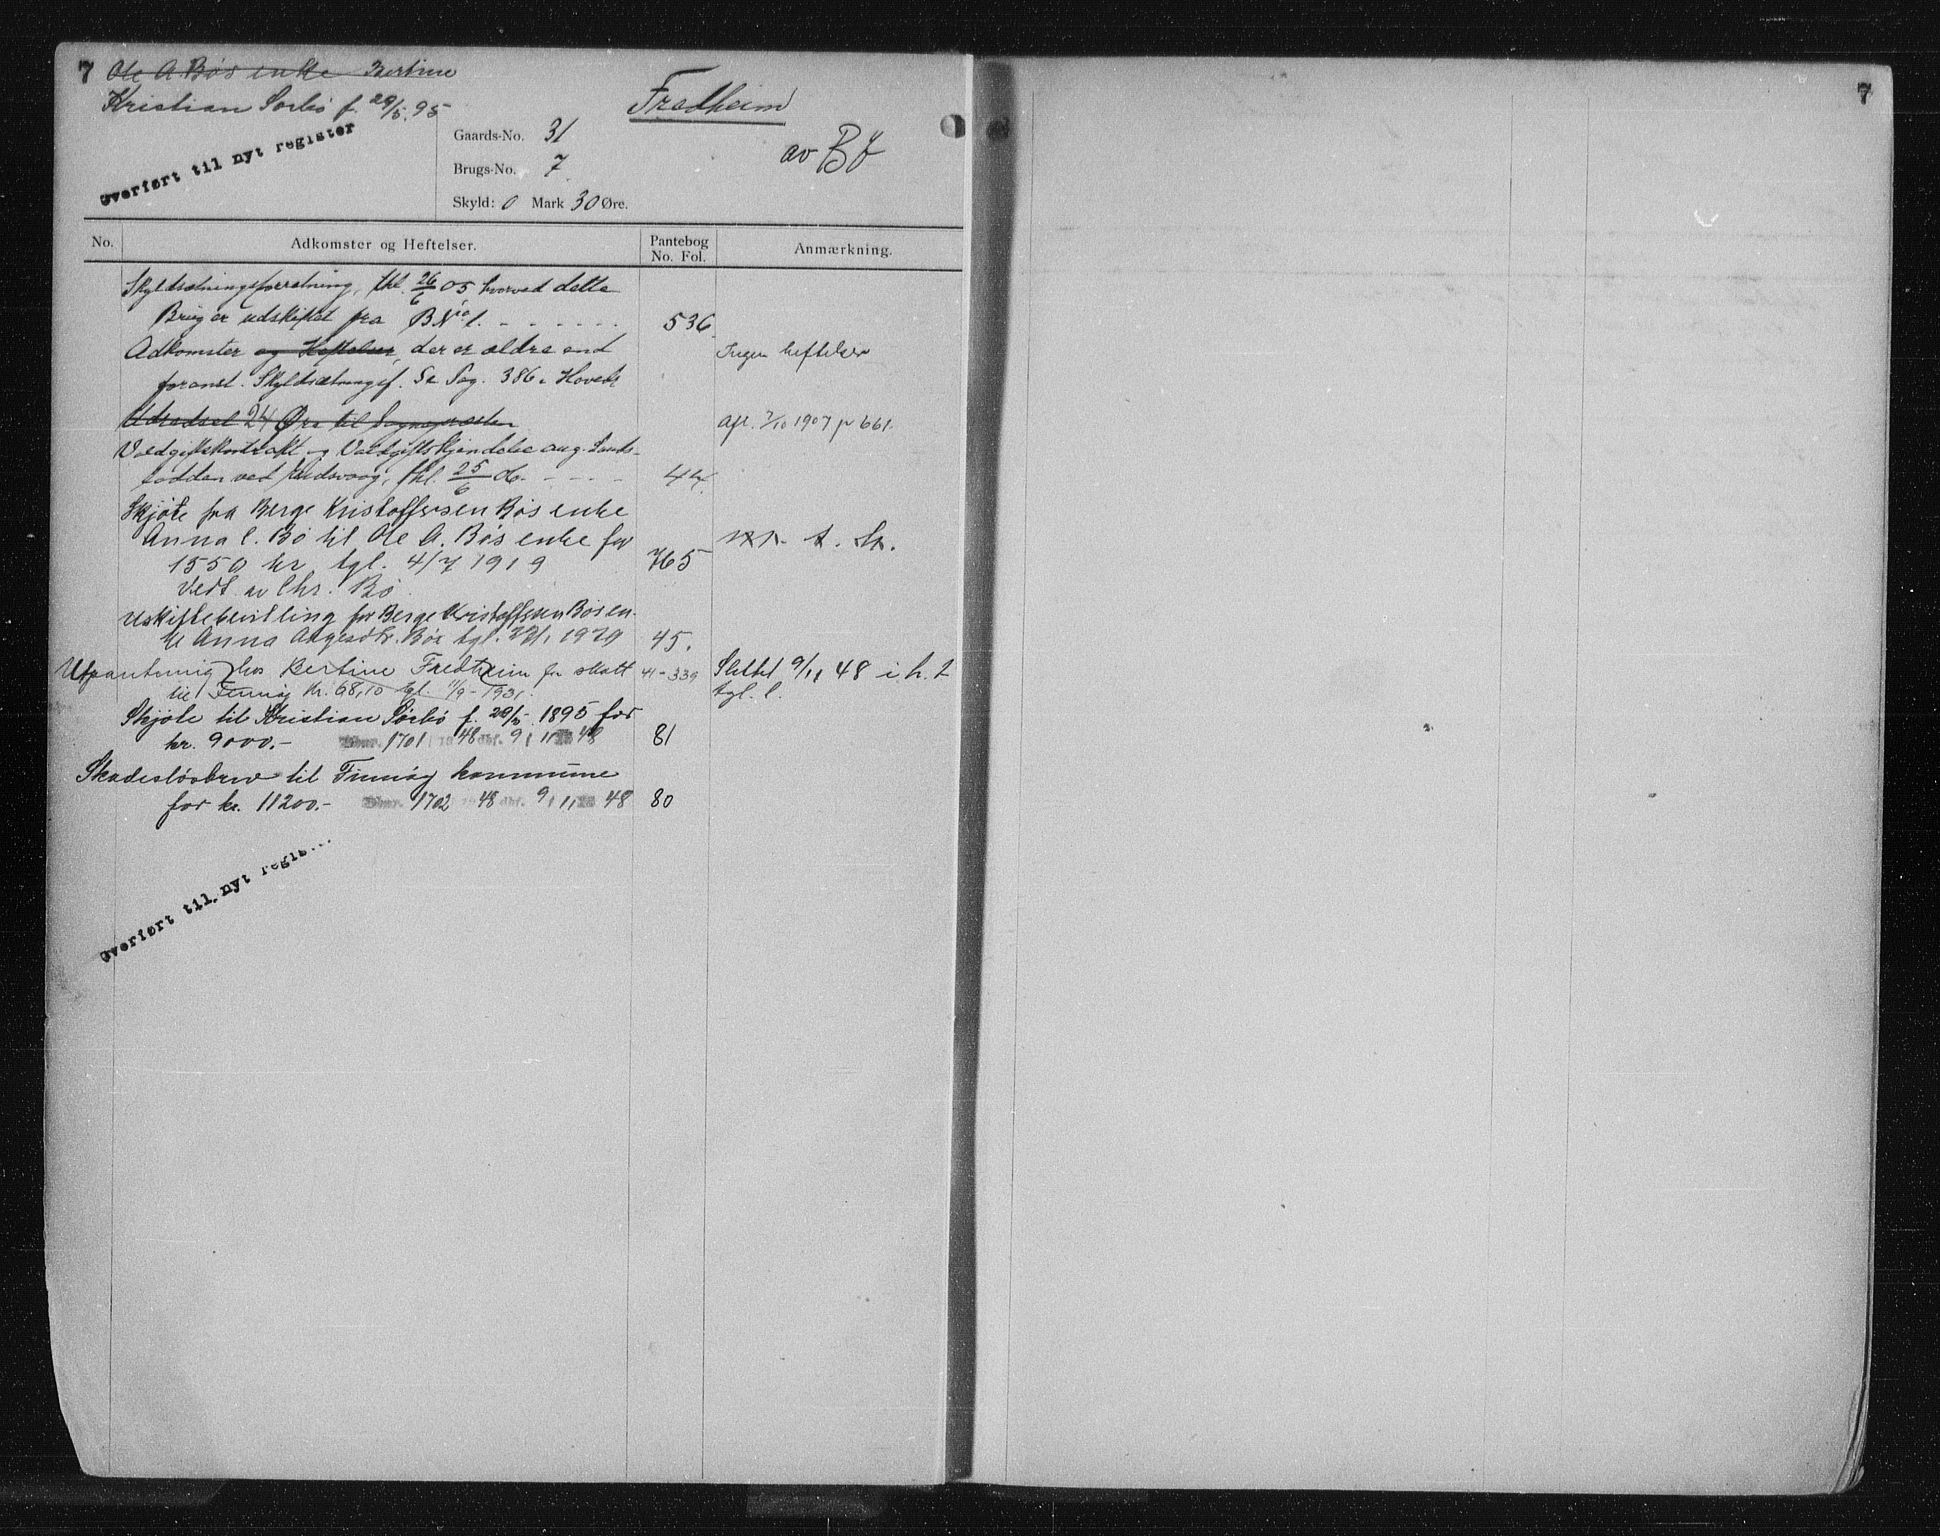 7 Ole A Bøs enke Bertine
Kristian Sørbø f. 29/5. 95
Overført til nyt register
Fredheim
av Bø
Gaards-No. 31
Brugs-No. 7
Skyld: 0 Mark 30 Øre.
No. Adkomster og Heftelser. Pantebog No. Fol. Anmærkning.
Skyldsætningsforretning, thl. 26/6 05 hvorved dette
Brug er udskiftet fra BNo 1. - - - - - - 536
Adkomster og Heftelser, der er ældre end Ingen heftelser
foranst. Skyldsætningsf. Se Pag. 386 i Hovedr
Udredsel 24 Øre til Sognepresten Afl. 7/10 1907 p 661.
Voldgiftskontrakt og Voldgiftskjendelse ang. Lands-
thl. 25/6 06. - - - - 44.
Skjøte fra Berge Kristoffersen Bøs enke
Anna C. Bø til Ole A. Bøs enke for
1550 kr tgl. 4/7 1919 765
Vedt. av Chr. Bø.
Uskiftebevilling for Berge Kristoffersen Bøs en-
ke Anna Aagesdtr. Bøe tgl. 22/1 1920 45.
Utpantning hos Bertine Fredheim for skatt 41-339 Slettet 9/11 48 i h. t
til Finnøy kr. 68,10 tgl. 11/9-1931. tgl. l.
Skjøte til Kristian Sørbø f. 29/5 1895 for
kr. 9000.- 1701 48 dbf. 9/11 48 81
Skadesløsbrev til Finnøy kommune
for kr. 11200.- 1702 48 dbf. 9/11 48 80
Overført til nyt regis...
7